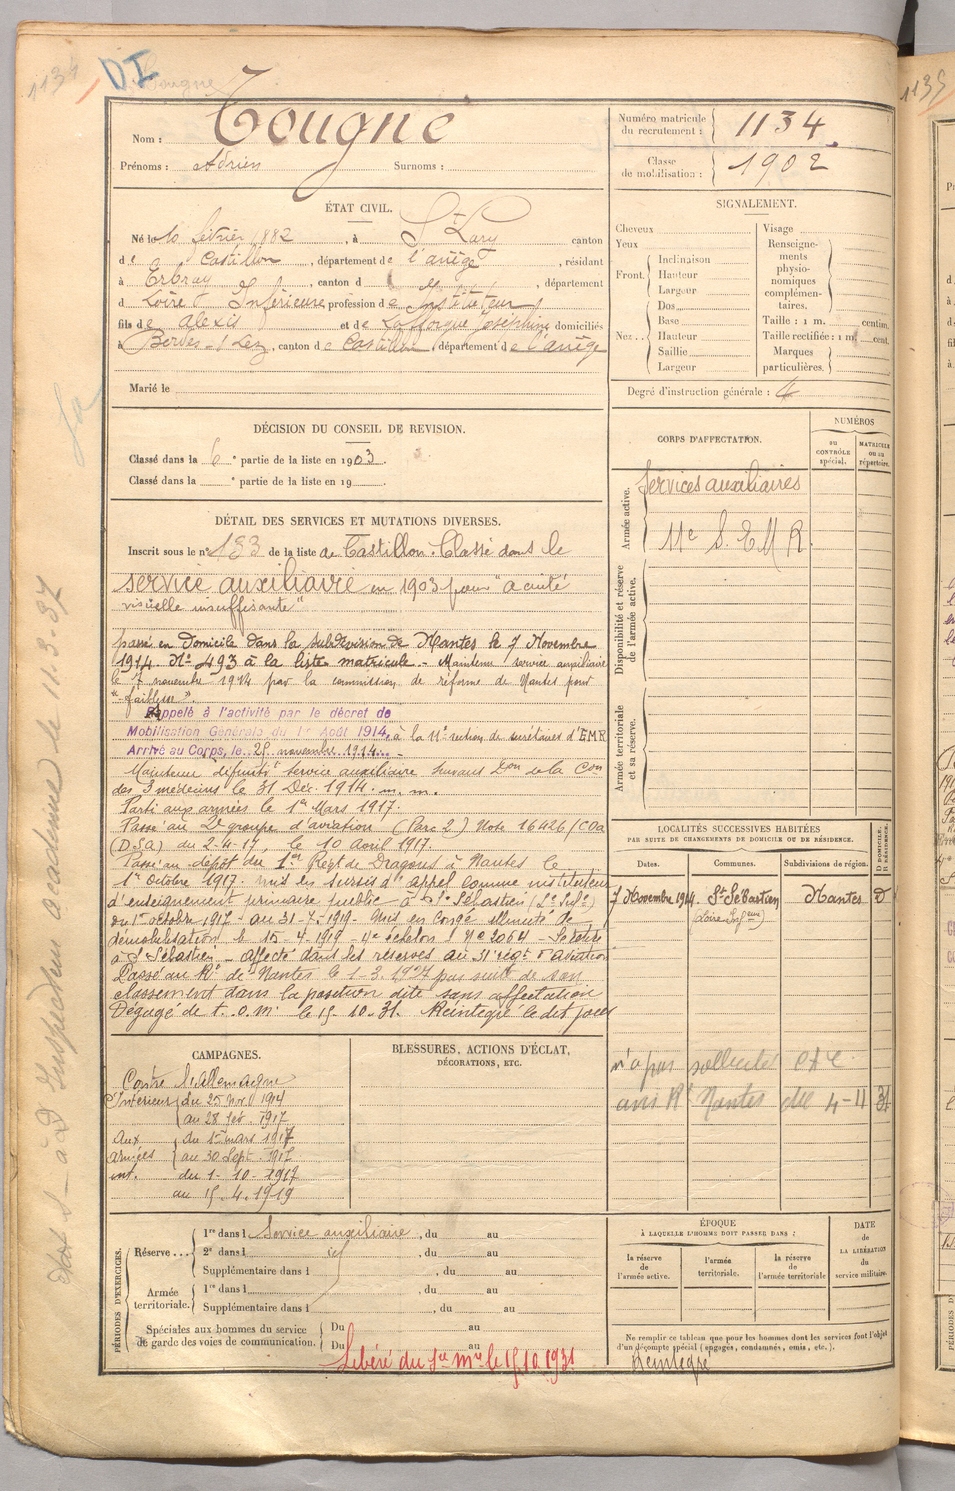 1134
DI
Tougne
1135
Nom : Tougne
Prénoms : Adrien Surnoms :
Numéro matricule du recrutement : 1134
Classe de mobilisation : 1902
ÉTAT CIVIL.
Né le 10 février 1882, à St Lary canton
de Castillon, département de l'ariège, résidant
à Erbray, canton d département
d Loire Inférieure profession de Instituteur
fils de Alexis et de Lafforgue Joséphine domiciliés
à Bordes-s/Lez, canton de Castillon, département de l'ariège
Marié le
SIGNALEMENT.
Cheveux
Yeux
Front. Inclinaison
Hauteur
Largeur
Nez... Dos
Base
Hauteur
Saillie
Largeur
Visage
Renseigne-
ments
physio-
nomiques
complémen-
taires.
Taille : 1 m. centim.
Taille rectifiée : 1 m. cent.
Marques
particulières.
Degré d'instruction générale : 4
DÉCISION DU CONSEIL DE REVISION.
Classé dans la 6e partie de la liste en 1903.
Classé dans la e partie de la liste en 19 .
DÉTAIL DES SERVICES ET MUTATIONS DIVERSES.
Inscrit sous le n° 133 de la liste de Castillon. Classé dans le
service auxiliaire en 1903 pour "acuité
visuelle insuffisante"
passé en Domicile dans la subdivision de Nantes le 7 Novembre
1914. N° 493 à la liste matricule. - Maintenu service auxiliaire
le 7 novembre 1914 par la commission de réforme de Nantes pour
"faiblesse".
Rappelé à l'activité par le décret de
Mobilisation Générale du 1er Août 1914, à la 11e section de secrétaires d'EMR
Arrivé au Corps, le 25 novembre 1914.
Maintenu définitf service auxiliaire suivant Don de la Con
des 3 médecins le 31 Déc. 1914. m. m.
Parti aux armées le 1er Mars 1917.
Passé au 2e groupe d'aviation (Parc 2) Note 16426/COa
(D.S.A) du 2-4-17, le 10 avril 1917.
Passé au dépôt du 1er Régt de Dragons à Nantes le
1er octobre 1917. mis en sursis d'appel comme instituteur
d'enseignement primaire public à St Sébastien (Lre Infre)
du 1er octobre 1917 - au 31-7-1919. Mis en congé illimité de
démobilisation le 15-4-1919 4e échelon N° 2064 - Se retire
à St Sébastien - affecté dans les réserves au 31e régt d'aviation
Passé au Rt de Nantes le 1-3-1927 par suite de son
classement dans la position dite sans affectation
Dégagé de t. o. m. le 15.10.31. Réintégré le dit jour
CORPS D'AFFECTATION.
NUMÉROS
au CONTRÔLE spécial.
MATRICULE ou au répertoire.
Armée active.
Services auxiliaires
11e S. E M R.
Disponibilité et réserve de l'armée active.
Armée territoriale et sa réserve.
LOCALITÉS SUCCESSIVES HABITÉES
PAR SUITE DE CHANGEMENTS DE DOMICILE OU DE RÉSIDENCE.
Dates. Communes. Subdivisions de région. D DOMICILE. R RÉSIDENCE.
7 Novembre 1914. St Sébastien Nantes D
(Loire Infeure)
n'a pas sollicité
avis Rt Nantes du 4-11 31
CAMPAGNES.
Contre l'Allemagne
Intérieur du 25 Nov. 1914
au 28 Fév. 1917
Aux du 1er mars 1917
armées au 30 Sept. 1917
int. du 1-10-1917
au 15.4.1919
BLESSURES, ACTIONS D'ÉCLAT,
DÉCORATIONS, ETC.
PÉRIODES D'EXERCICES.
Réserve... 1re dans l Service auxiliaire, du au
2e dans l , du au
Supplémentaire dans l , du au
Armée territoriale. 1re dans l , du au
Supplémentaire dans l , du au
Spéciales aux hommes du service
de garde des voies de communication. Du au
Du au
Libéré du Sce Mre le 15.10.1931
ÉPOQUE
À LAQUELLE L'HOMME DOIT PASSER DANS :
la réserve de l'armée active.
l'armée territoriale.
la réserve de l'armée territoriale
DATE DE LA LIBÉRATION du service militaire.
Ne remplir ce tableau que pour les hommes dont les services font l'objet
d'un décompte spécial (engagés, condamnés, omis, etc.).
Réintégré
à Inspection académie le 11-3-37